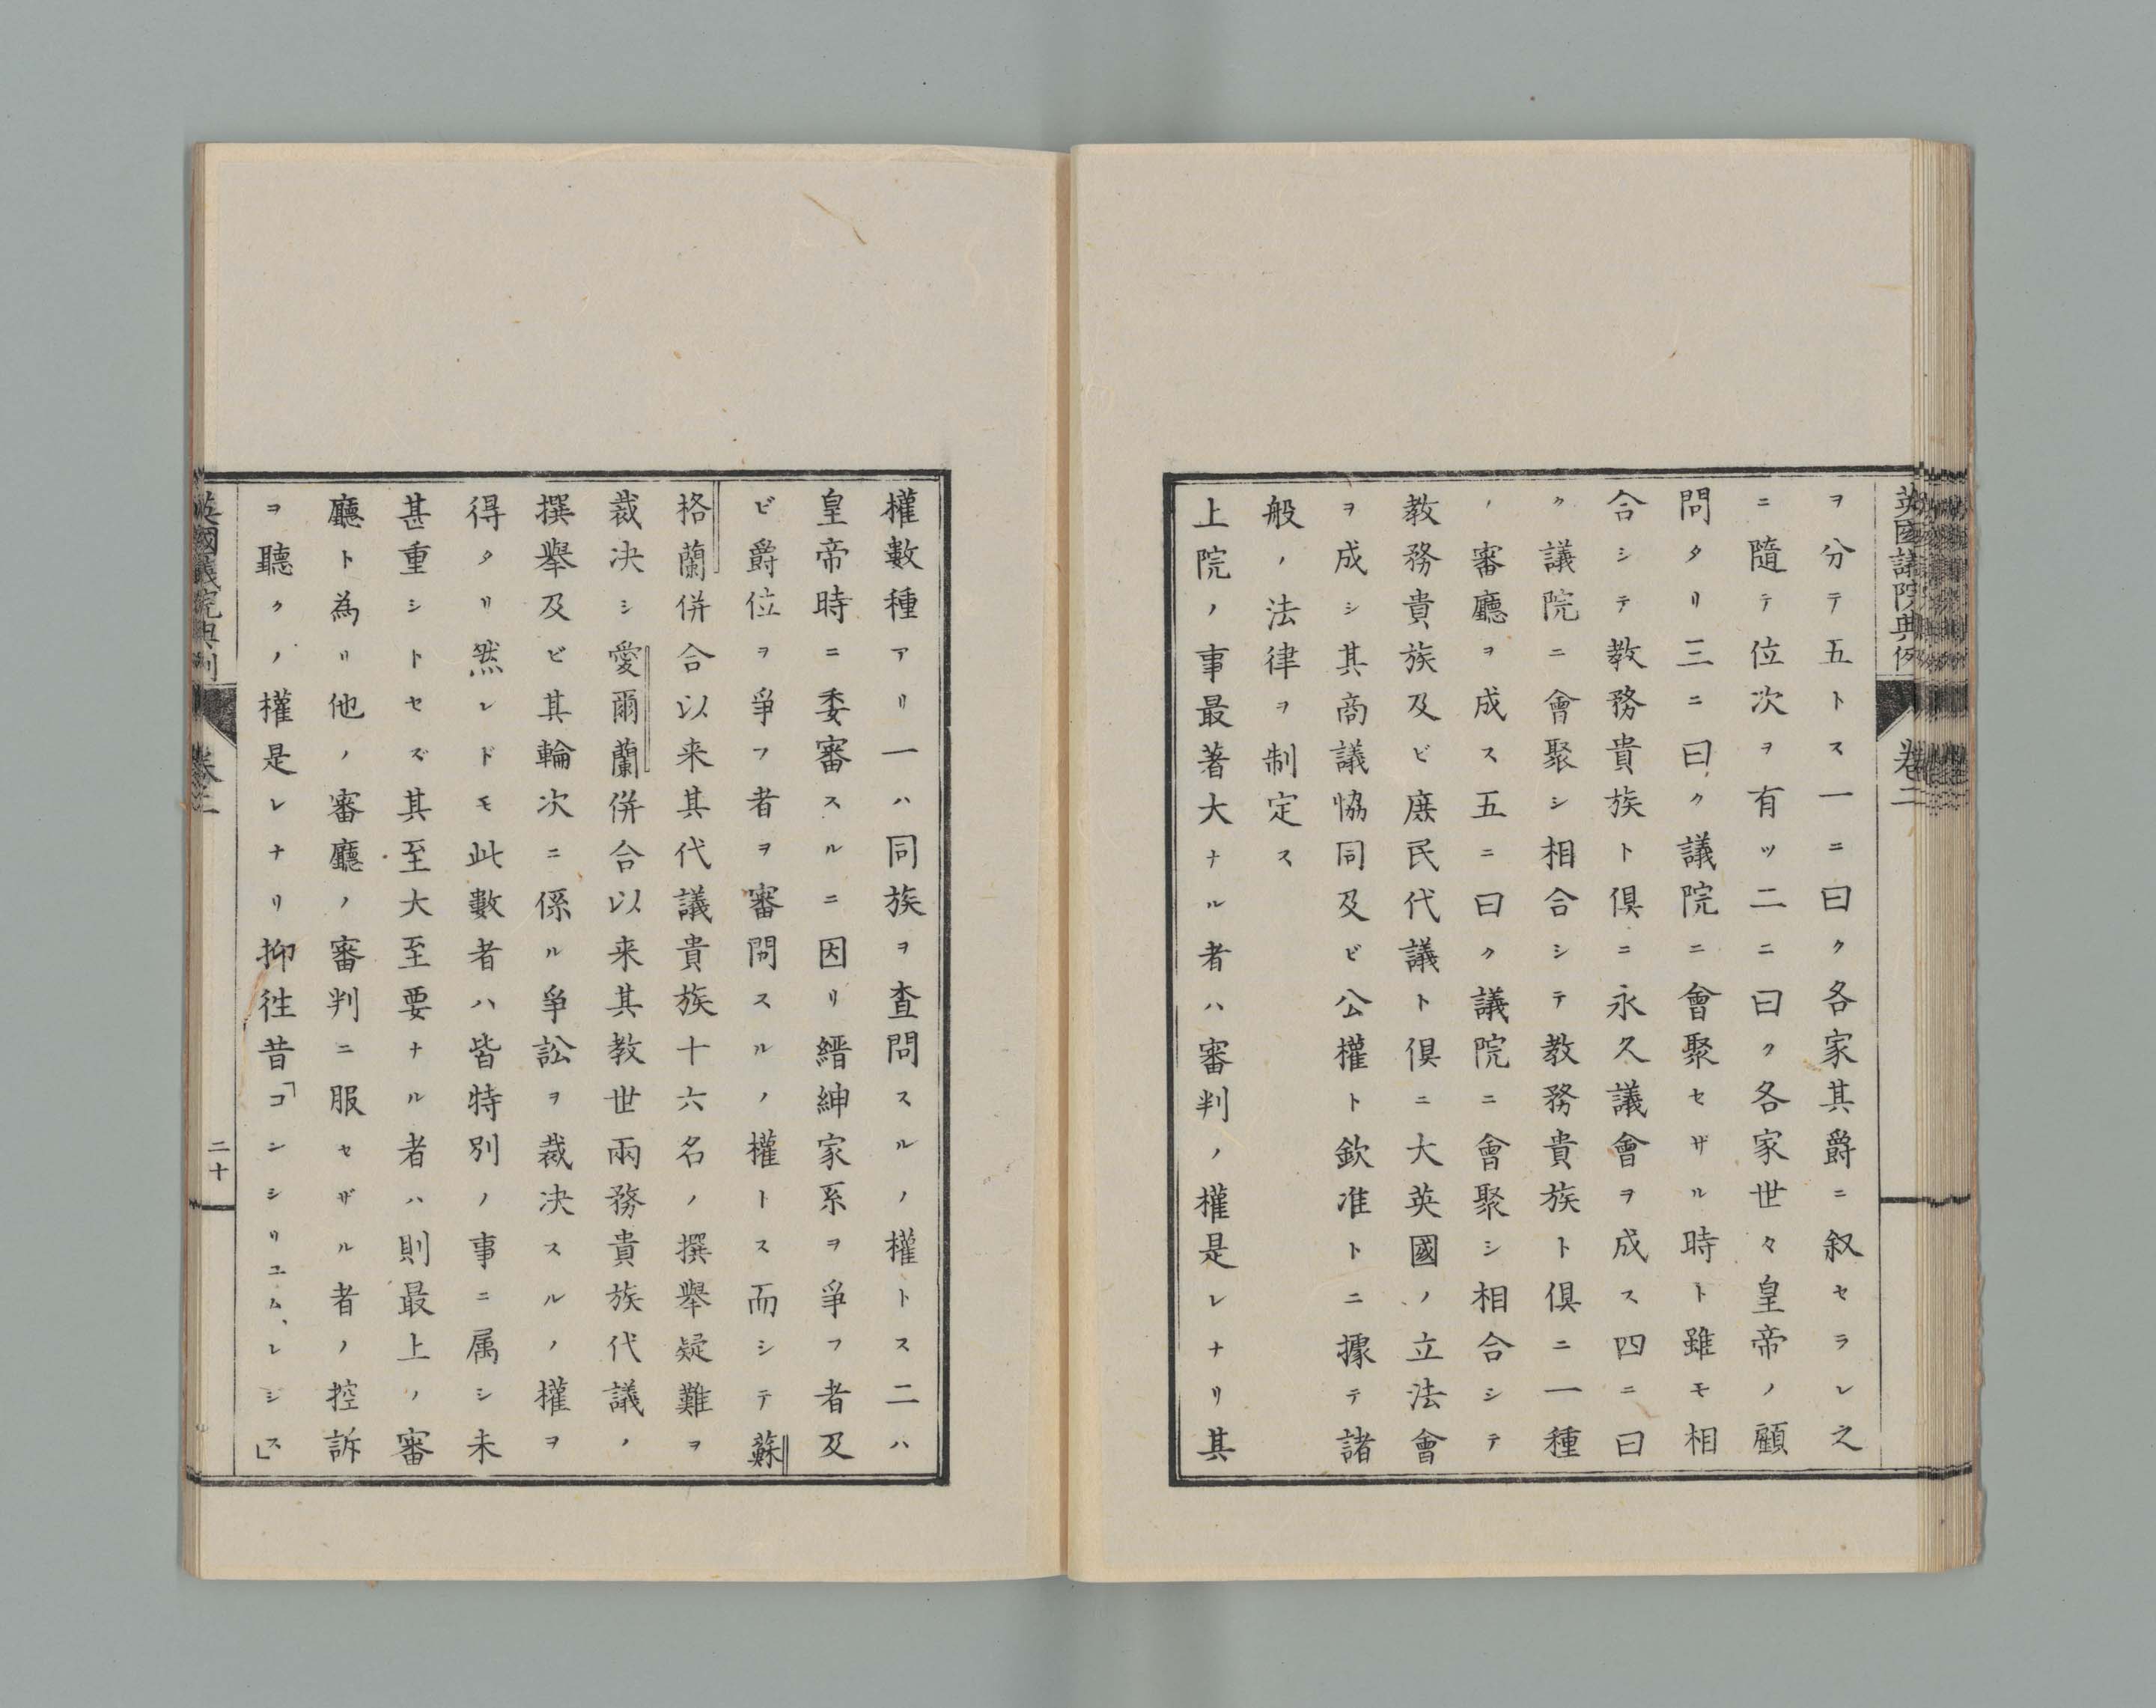 英國議院典例 卷二
ヲ分テ五トス一ニ曰ク各家其爵ニ叙セラレ之
ニ隨テ位次ヲ有ツ二ニ曰ク各家世々皇帝ノ顧
問タリ三ニ曰ク議院ニ會聚セザル時ト雖モ相
合シテ教務貴族ト俱ニ永久議會ヲ成ス四ニ曰
ク議院ニ會聚シ相合シテ教務貴族ト俱ニ一種
ノ審廳ヲ成ス五ニ曰ク議院ニ會聚シ相合シテ
教務貴族及ビ庶民代議ト俱ニ大英國ノ立法會
ヲ成シ其商議恊同及ビ公權ト欽准トニ據テ諸
般ノ法律ヲ制定ス
上院ノ事最著大ナル者ハ審判ノ權是レナリ其
權數種アリ一ハ同族ヲ査問スルノ權トス二ハ
皇帝時ニ委審スルニ因リ縉紳家系ヲ爭フ者及
ビ爵位ヲ爭フ者ヲ審問スルノ權トス而シテ蘇
格蘭併合以来其代議貴族十六名ノ撰擧疑難ヲ
裁决シ愛爾蘭併合以来其教世兩務貴族代議ノ
撰擧及ビ其輪次ニ係ル爭訟ヲ裁决スルノ權ヲ
得タリ然レドモ此數者ハ皆特別ノ事ニ属シ未
甚重シトセズ其至大至要ナル者ハ則最上ノ審
廳ト為リ他ノ審廳ノ審判ニ服セザル者ノ控訴
ヲ聽クノ權是レナリ抑徃昔「コンシリユム、レジス」
英國議院典例 卷二 二十